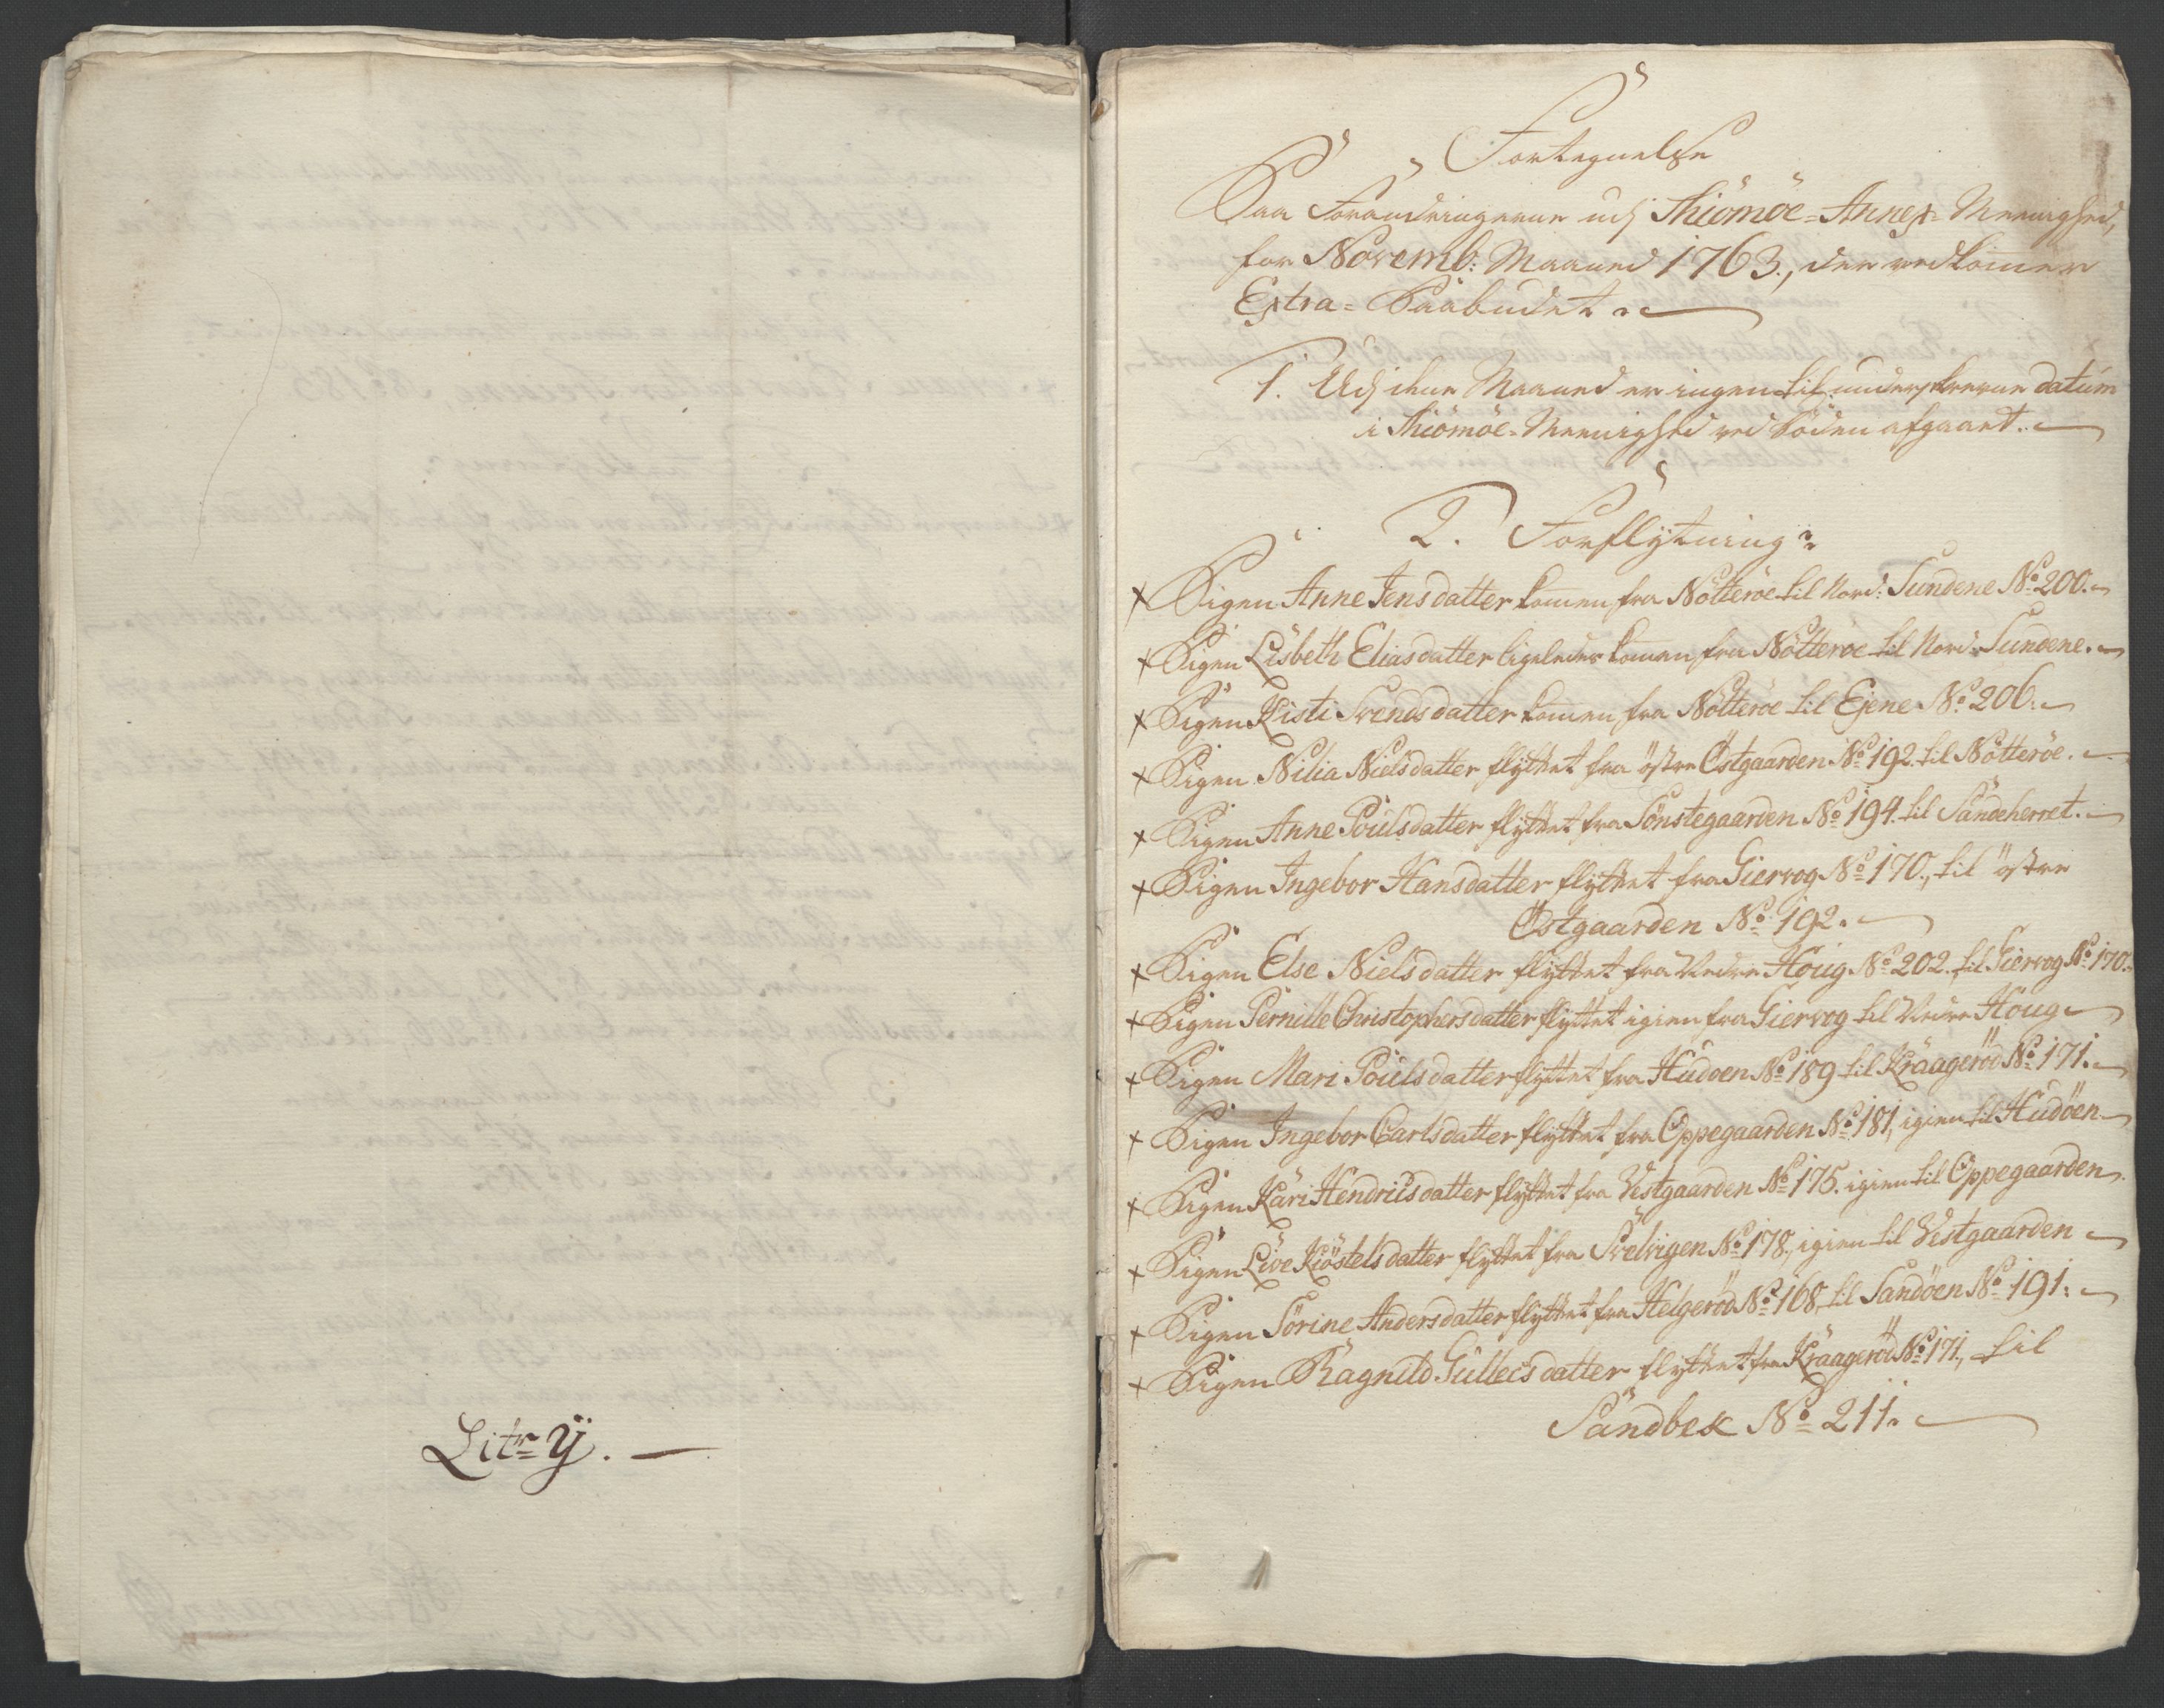 Litr ÿ.
Fortegnelse
Paa Forandringerne udj Thiömöe-Annex-Meenighed,
for Novemb: Maaned 1763., der vedkommer
Extra-Paabudet.
1. Udj denne Maaned er ingen til underskrevne datum
i Thiömöe-Meenighed ved Döden afgaaet.
2. Forflÿtning
+ Pigen Anne Jensdatter kommen fra Nötteröe til Nord: Sundene No. 200.
+ Pigen Lisbeth Eliasdatter ligeledes kommen fra Nötteröe til Nord: Sundene.
+ Pigen Kisti Svendsdatter kommen fra Nötteröe til Ejene No. 206.
+ Pigen Nilia Nielsdatter flÿttet fra östre Östgaarden No. 192. til Nötteröe.
+ Pigen Anne Poulsdatter flÿttet fra Sönstegaarden No. 194. til Sandeherret.
+ Pigen Ingebor Hansdatter flÿttet fra Giervog No. 170., til östre
Östgaarden No. 192.
+ Pigen Else Nielsdatter flÿttet fra Nedre Houg No. 202. til Giervog No. 170.
+ Pigen Pernille Christophersdatter flÿttet igien fra Giervog til Nedre Houg
+ Pigen Mari Poulsdatter flÿttet fra Hudoen No. 189 til Kraageröd No. 171.
+ Pigen Ingebor Carlsdatter flÿttet fra Oppegaarden No. 181, igien til Hudöen
+ Pigen Kari Hendricsdatter flÿttet fra Vestgaarden No. 175. igien til Oppegaarden
+ Pigen Live Kiöstelsdatter flÿttet fra Svelvigen No. 178., igien til Vestgaarden
+ Pigen Sörine Andersdatter flÿttet fra Helgeröd No. 168, til Sandöen No. 191.
+ Pigen Ragnild Gullecsdatter flÿttet fra Kraageröd No. 171, til
Sandbek No. 211.